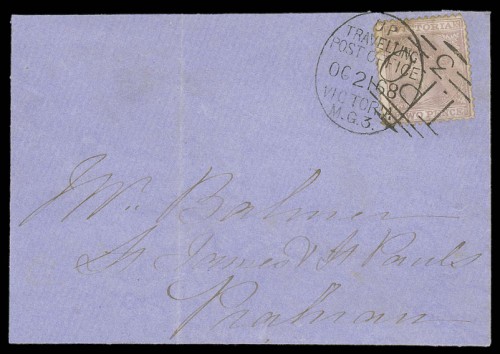 UP
TRAVELLING
POST OFFICE
OC 21 68
VICTORIA
M.G.3.
VICTORIA
PENCE
Mr. Balmer
St. James & St Pauls
Prahran